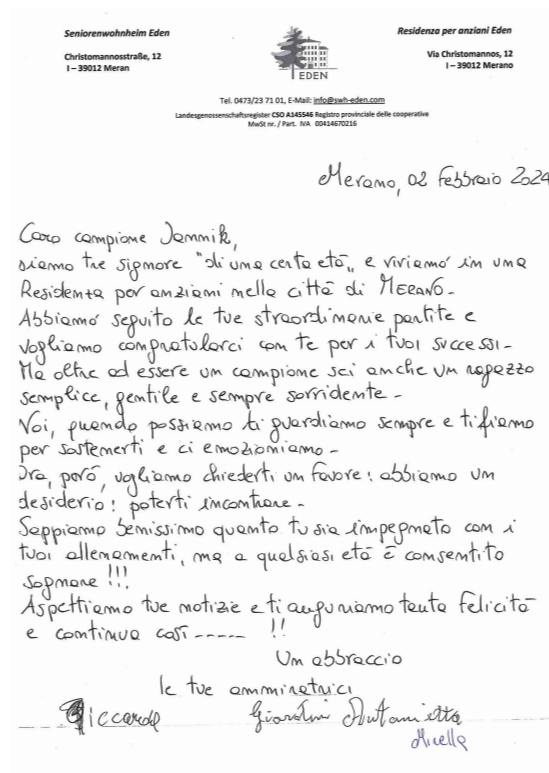 Seniorenwohnheim Eden
Christomannosstraße, 12
I – 39012 Meran
EDEN
Residenza per anziani Eden
Via Christomannos, 12
I – 39012 Merano
Tel. 0473/23 71 01, E-Mail: info@swh-eden.com
Landesgenossenschaftsregister CSO A145546 Registro provinciale delle cooperative
MwSt nr. / Part. IVA 00414670216
Merano, 02 Febbraio 2024
Caro campione Jannik,
siamo tre signore "di una certa età„ e viviamo in una
Residenza per anziani nella città di MERANO-
Abbiamo seguito le tue straordinarie partite e
vogliamo congratularci con te per i tuoi successi-
Ma oltre ad essere un campione sei anche un ragazzo
semplice, gentile e sempre sorridente-
Noi, quando possiamo ti guardiamo sempre e tifiamo
per sostenerti e ci emozioniamo-
Ora, però, vogliamo chiederti un favore: abbiamo un
desiderio: poterti incontrare-
Sappiamo benissimo quanto tu sia impegnato con i
tuoi allenamenti, ma a qualsiasi età è consentito
sognare !!!
Aspettiamo tue notizie e ti auguriamo tanta felicità
e continua così ----- !!
Un abbraccio
le tue ammiratrici
Antonietta